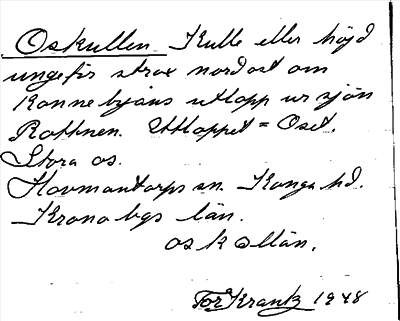 Oskullen Kulle eller höjd
ungefär strax nordost om
Ronnebyåns utlopp ur sjön
Rottnen. Utloppet = Oset.
Stora os.
Hovmantorps sn. Konga hd.
Kronobgs län.
Tor Krantz 1948